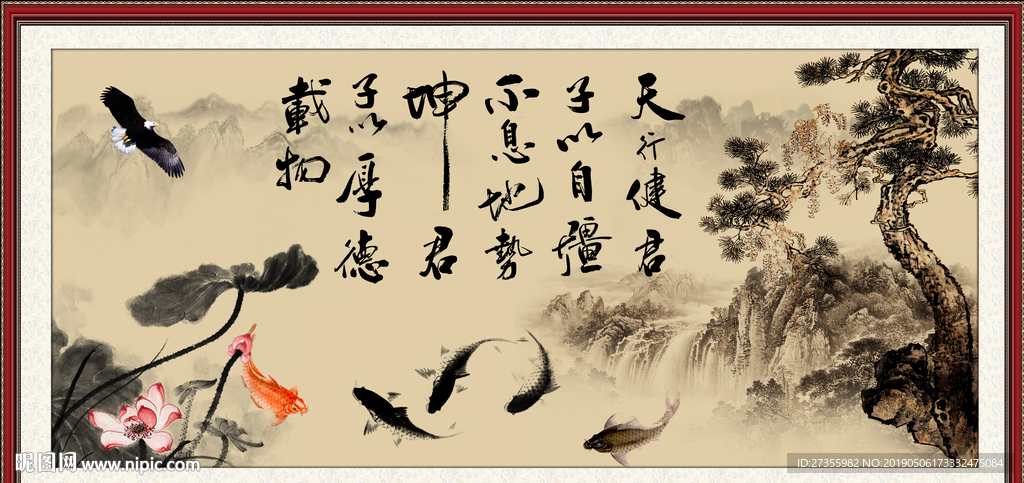 天行健君
子以自彊
不息地勢
坤君
子以厚德
載物
昵图网 www.nipic.com
ID:27355982 NO:20190506173332475084